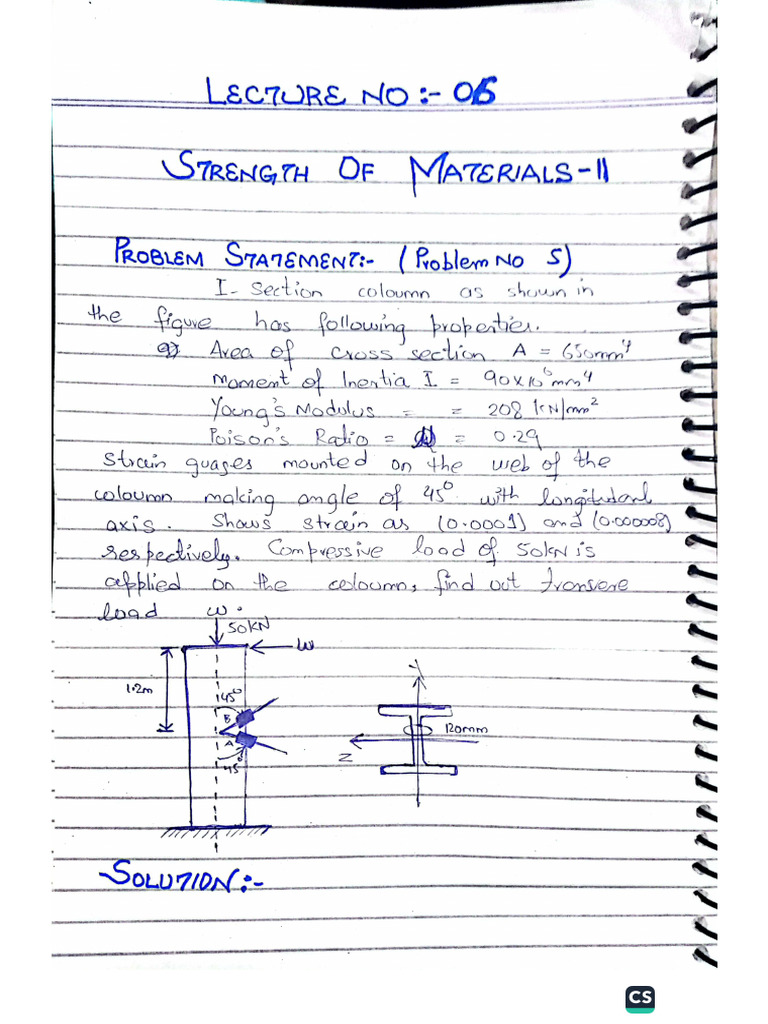 LECTURE NO :- 06
STRENGTH OF MATERIALS-II
PROBLEM STATEMENT:- (Problem No 5)
I-section coloumn as shown in
the figure has following properties.
a) Area of cross section A = 650mm⁴
Moment of Inertia I = 90x10⁶mm⁴
Young's Modulus = = 208 kN/mm²
Poison's Ratio = = 0.29
strain guages mounted on the web of the
coloumn making angle of 45° with longitudanl
axis. Shows strain as (0.0001) and (0.000008)
respectively. Compressive load of 50kN is
applied on the coloumn, find out tranvere
load w.
50kN
W
1.2m
45°
B
A
45°
Y
120mm
Z
SOLUTION:-
CS